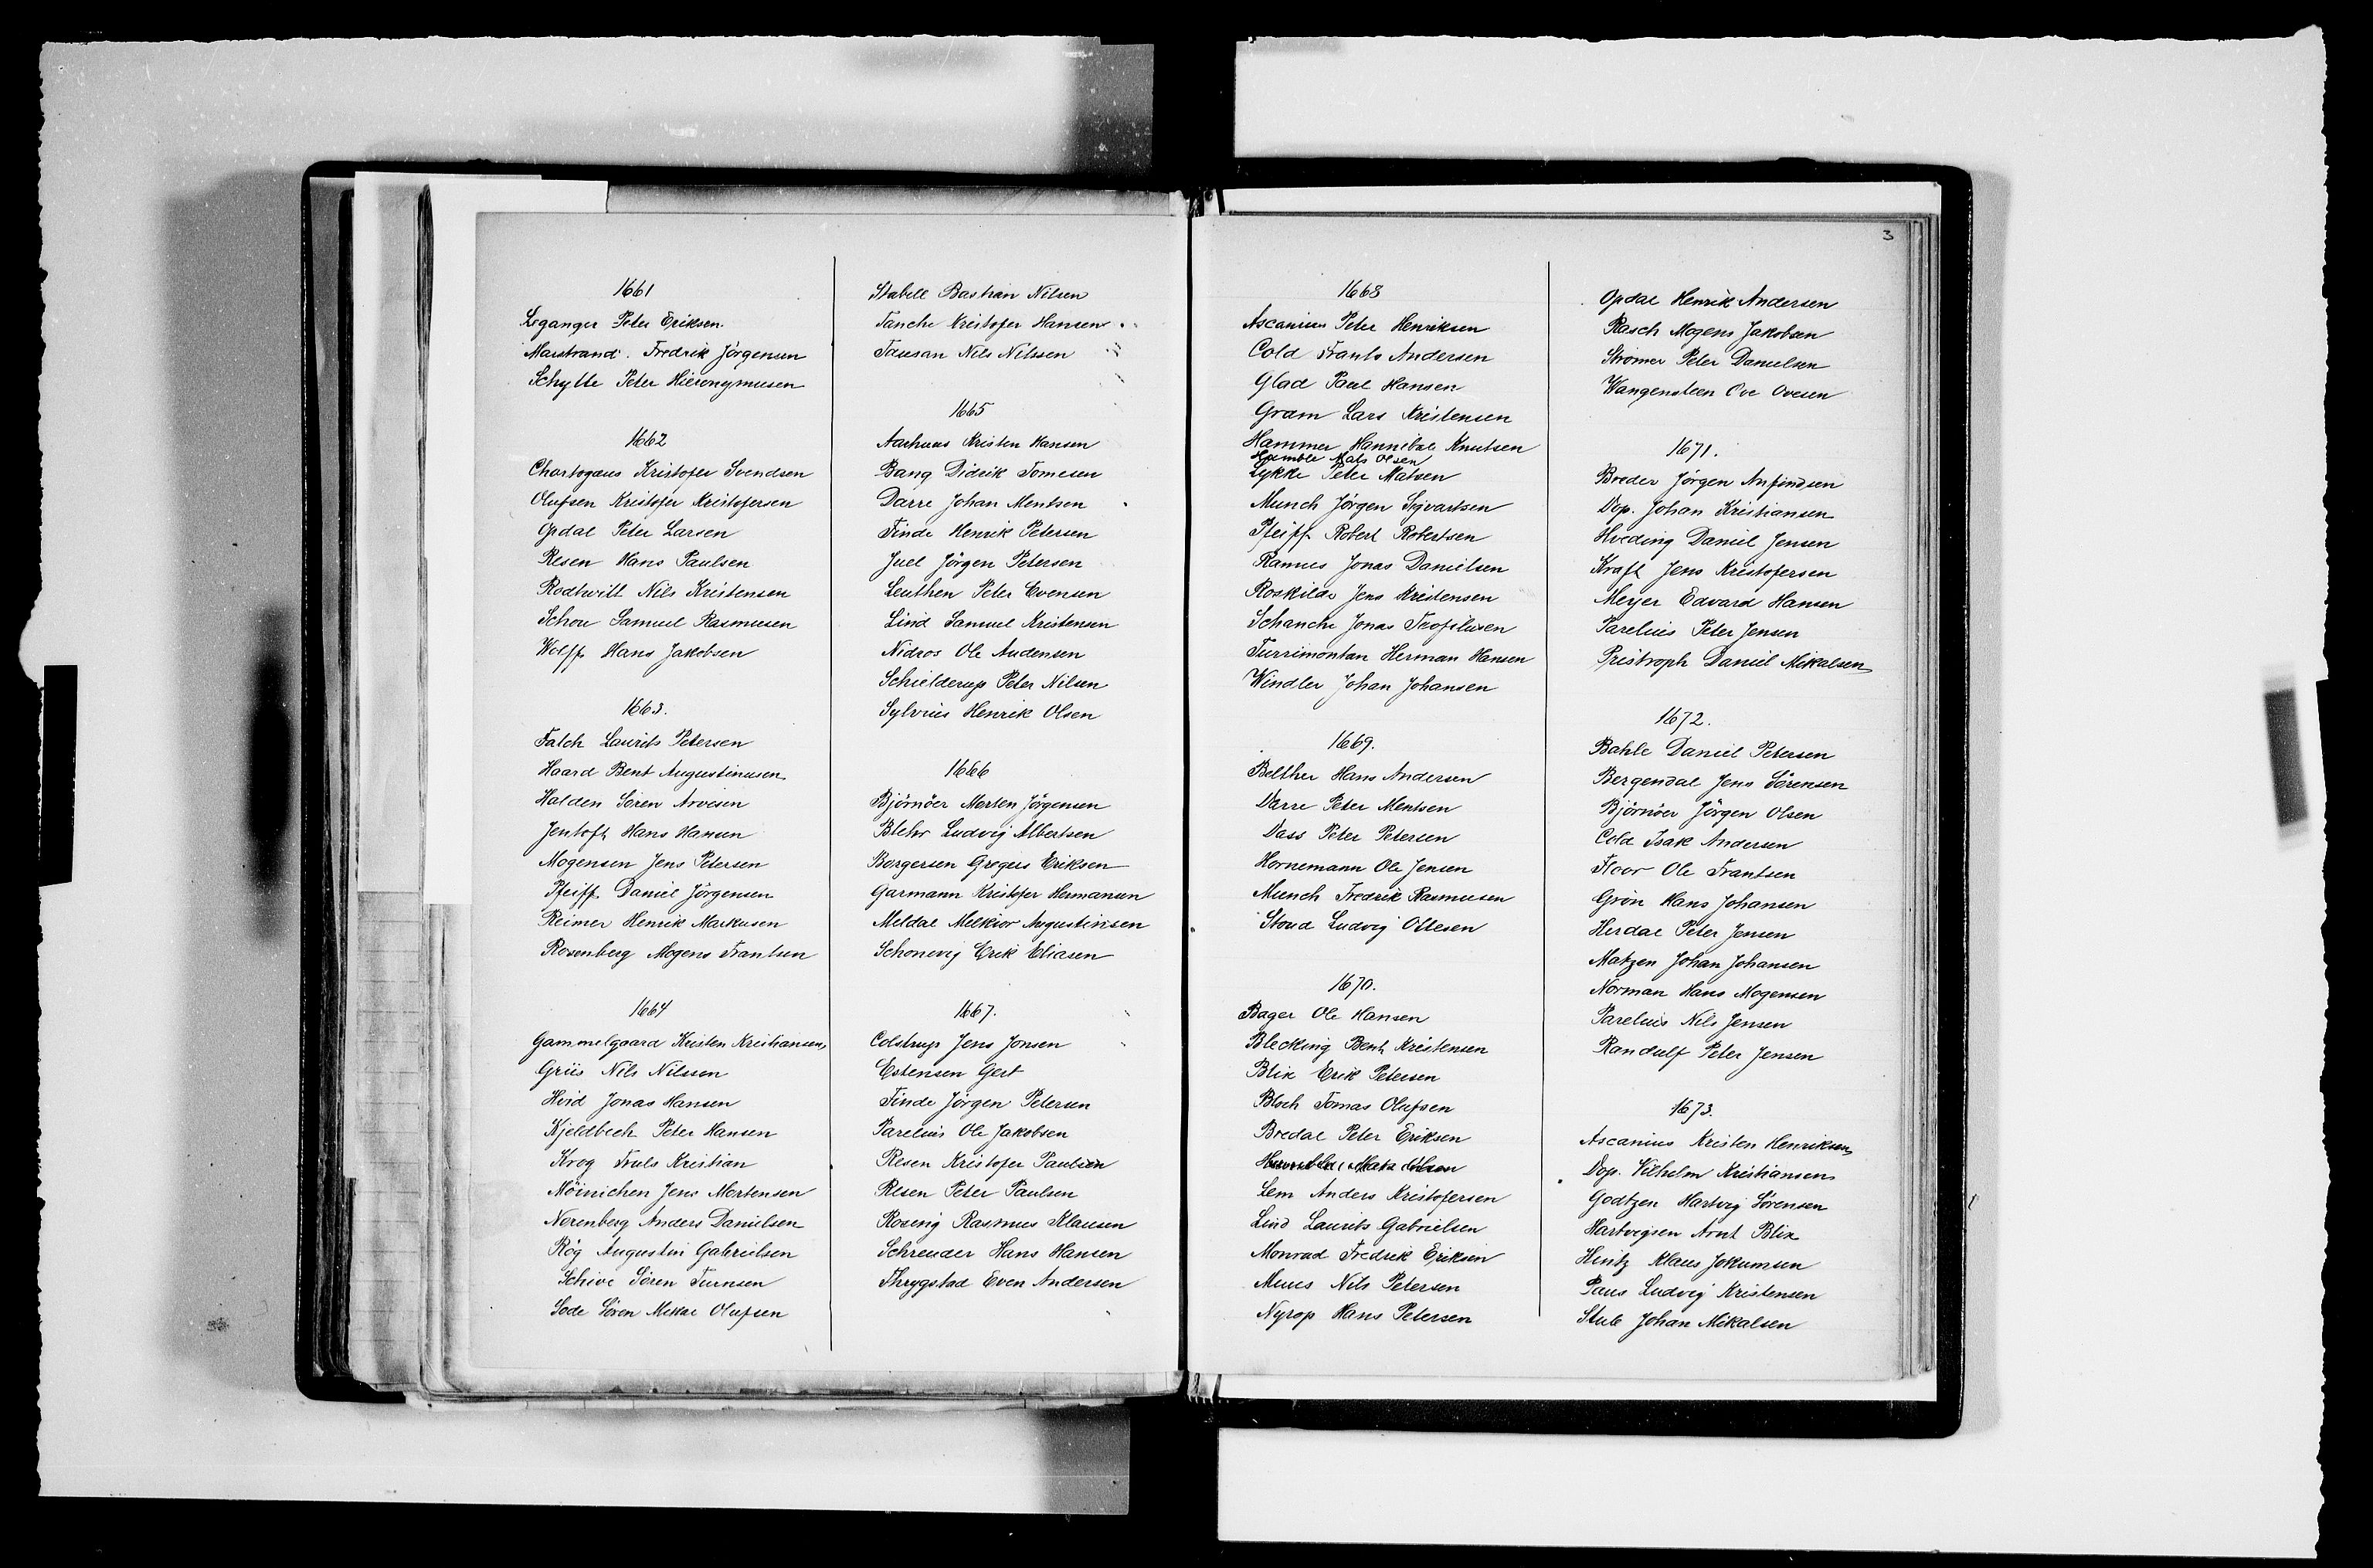 1661
Leganger Peter Eriksen.
Marstrand. Fredrik Jörgensen
Schytte Peter Hieronymusen
1662
Chartogaus Kristofer Svendsen
Olufsen Kristofer Kristofersen
Opdal Peter Larsen
Resen Hans Paulsen
Rodtwitt Nils Kristensen
Schou Samuel Rasmusen
Wolff Hans Jakobsen
1663.
Falch Laurits Petersen
Haard Bent Augustinusen
Halden Sören Arvesen
Jentoft Hans Hansen
Mogensen Jens Petersen
Pfeiff Daniel Jörgensen
Reimer Henrik Markusen
Rosenberg Mogens Frantsen
1664
Gammelgaard Kristen Kristiansen
Griis Nils Nilssen
Hvid Jonas Hansen
Kjeldbech Peter Hansen
Krog Truls Kristian
Möinichen Jens Mortensen
Norenberg Anders Danielsen
Róg Augustin Gabrielsen
Schive Sören Turnsen
Sode Sören Mikal Olufsen
Stabell Bastian Nilsen
Tanche Kristofer Hansen
Tausan Nils Nilssen
1665
Aarhuus Kristen Hansen
Bang Didrik Tomesen
Darre Johan Mentsen
Finde Henrik Petersen
Juel Jörgen Petersen
Leuthen Peter Evensen
Lind Samuel Kristensen
Nidros Ole Audensen
Schielderup Peter Nilsen
Sylvius Henrik Olsen
1666
Björnöer Morten Jörgensen
Blehr Ludvig Albertsen
Borgersen Gregers Eriksen
Garmann Kristofer Hermansen
Meldal Melkior Augustinsen
Schonevig Erik Eliasen
1667.
Colstrup Jens Jonsen
Estensen Gert
Finde Jörgen Petersen
Parelius Ole Jakobsen
Resen Kristofer Paulsen
Resen Peter Paulsen
Rosing Rasmus Klausen
Schreuder Hans Hansen
Thrygstad Even Andersen
3
1668
Ascanius Peter Henriksen
Cold Frants Andersen
Glad Paul Hansen
Gram Lars Kristensen
Hammer Hannibal Knutsen
Humble Mats Olsen
Lykke Peter Matsen
Munch Jörgen Sigvartsen
Pfeiff Robert Robertsen
Ramus Jonas Danielsen
Roskilde Jens Kristensen
Schanche Jonas Teofilusen
Turrimontan Herman Hansen
Windler Johan Johansen
1669.
Belther Hans Andersen
Darre Peter Mentsen
Dass Peter Petersen
Hornemann Ole Jensen
Munch Fredrik Rasmusen
Stoud Ludvig Ottesen
1670.
Bager Ole Hansen
Blecking Bent Kristensen
Blix Erik Petersen
Bloch Tomas Olufsen
Bredal Peter Eriksen
Humble Mats Olsen
Lem Anders Kristofersen
Lind Laurits Gabrielsen
Monrad Fredrik Eriksen
Muus Nils Petersen
Nyrop Hans Petersen
Opdal Henrik Andersen
Rasch Mogens Jakobsen
Strömer Peter Danielsen
Wangensteen Ove Ovesen
1671.
Breder Jörgen Anfindsen
Dop. Johan Kristiansen
Hveding Daniel Jensen
Kraft Jens Kristofersen
Meyer Edvard Hansen
Parelius Peter Jensen
Pristroph Daniel Mikalsen
1672.
Bahle Daniel Petersen
Bergendal Jens Sörensen
Björnöer Jörgen Olsen
Cold Isak Andersen
Floor Ole Frantsen
Grön Hans Johansen
Herdal Peter Jensen
Matzen Johan Johansen
Norman Hans Mogensen
Parelius Nils Jensen
Randulf Peter Jensen
1673.
Ascanius Kristen Henriksen
Dop. Vilhelm Kristiansen
Godtzen Hartvig Sörensen
Hartvigsen Arnt Blix
Hintz Klaus Jokumsen
Paus Ludvig Kristensen
Stub Johan Mikalsen